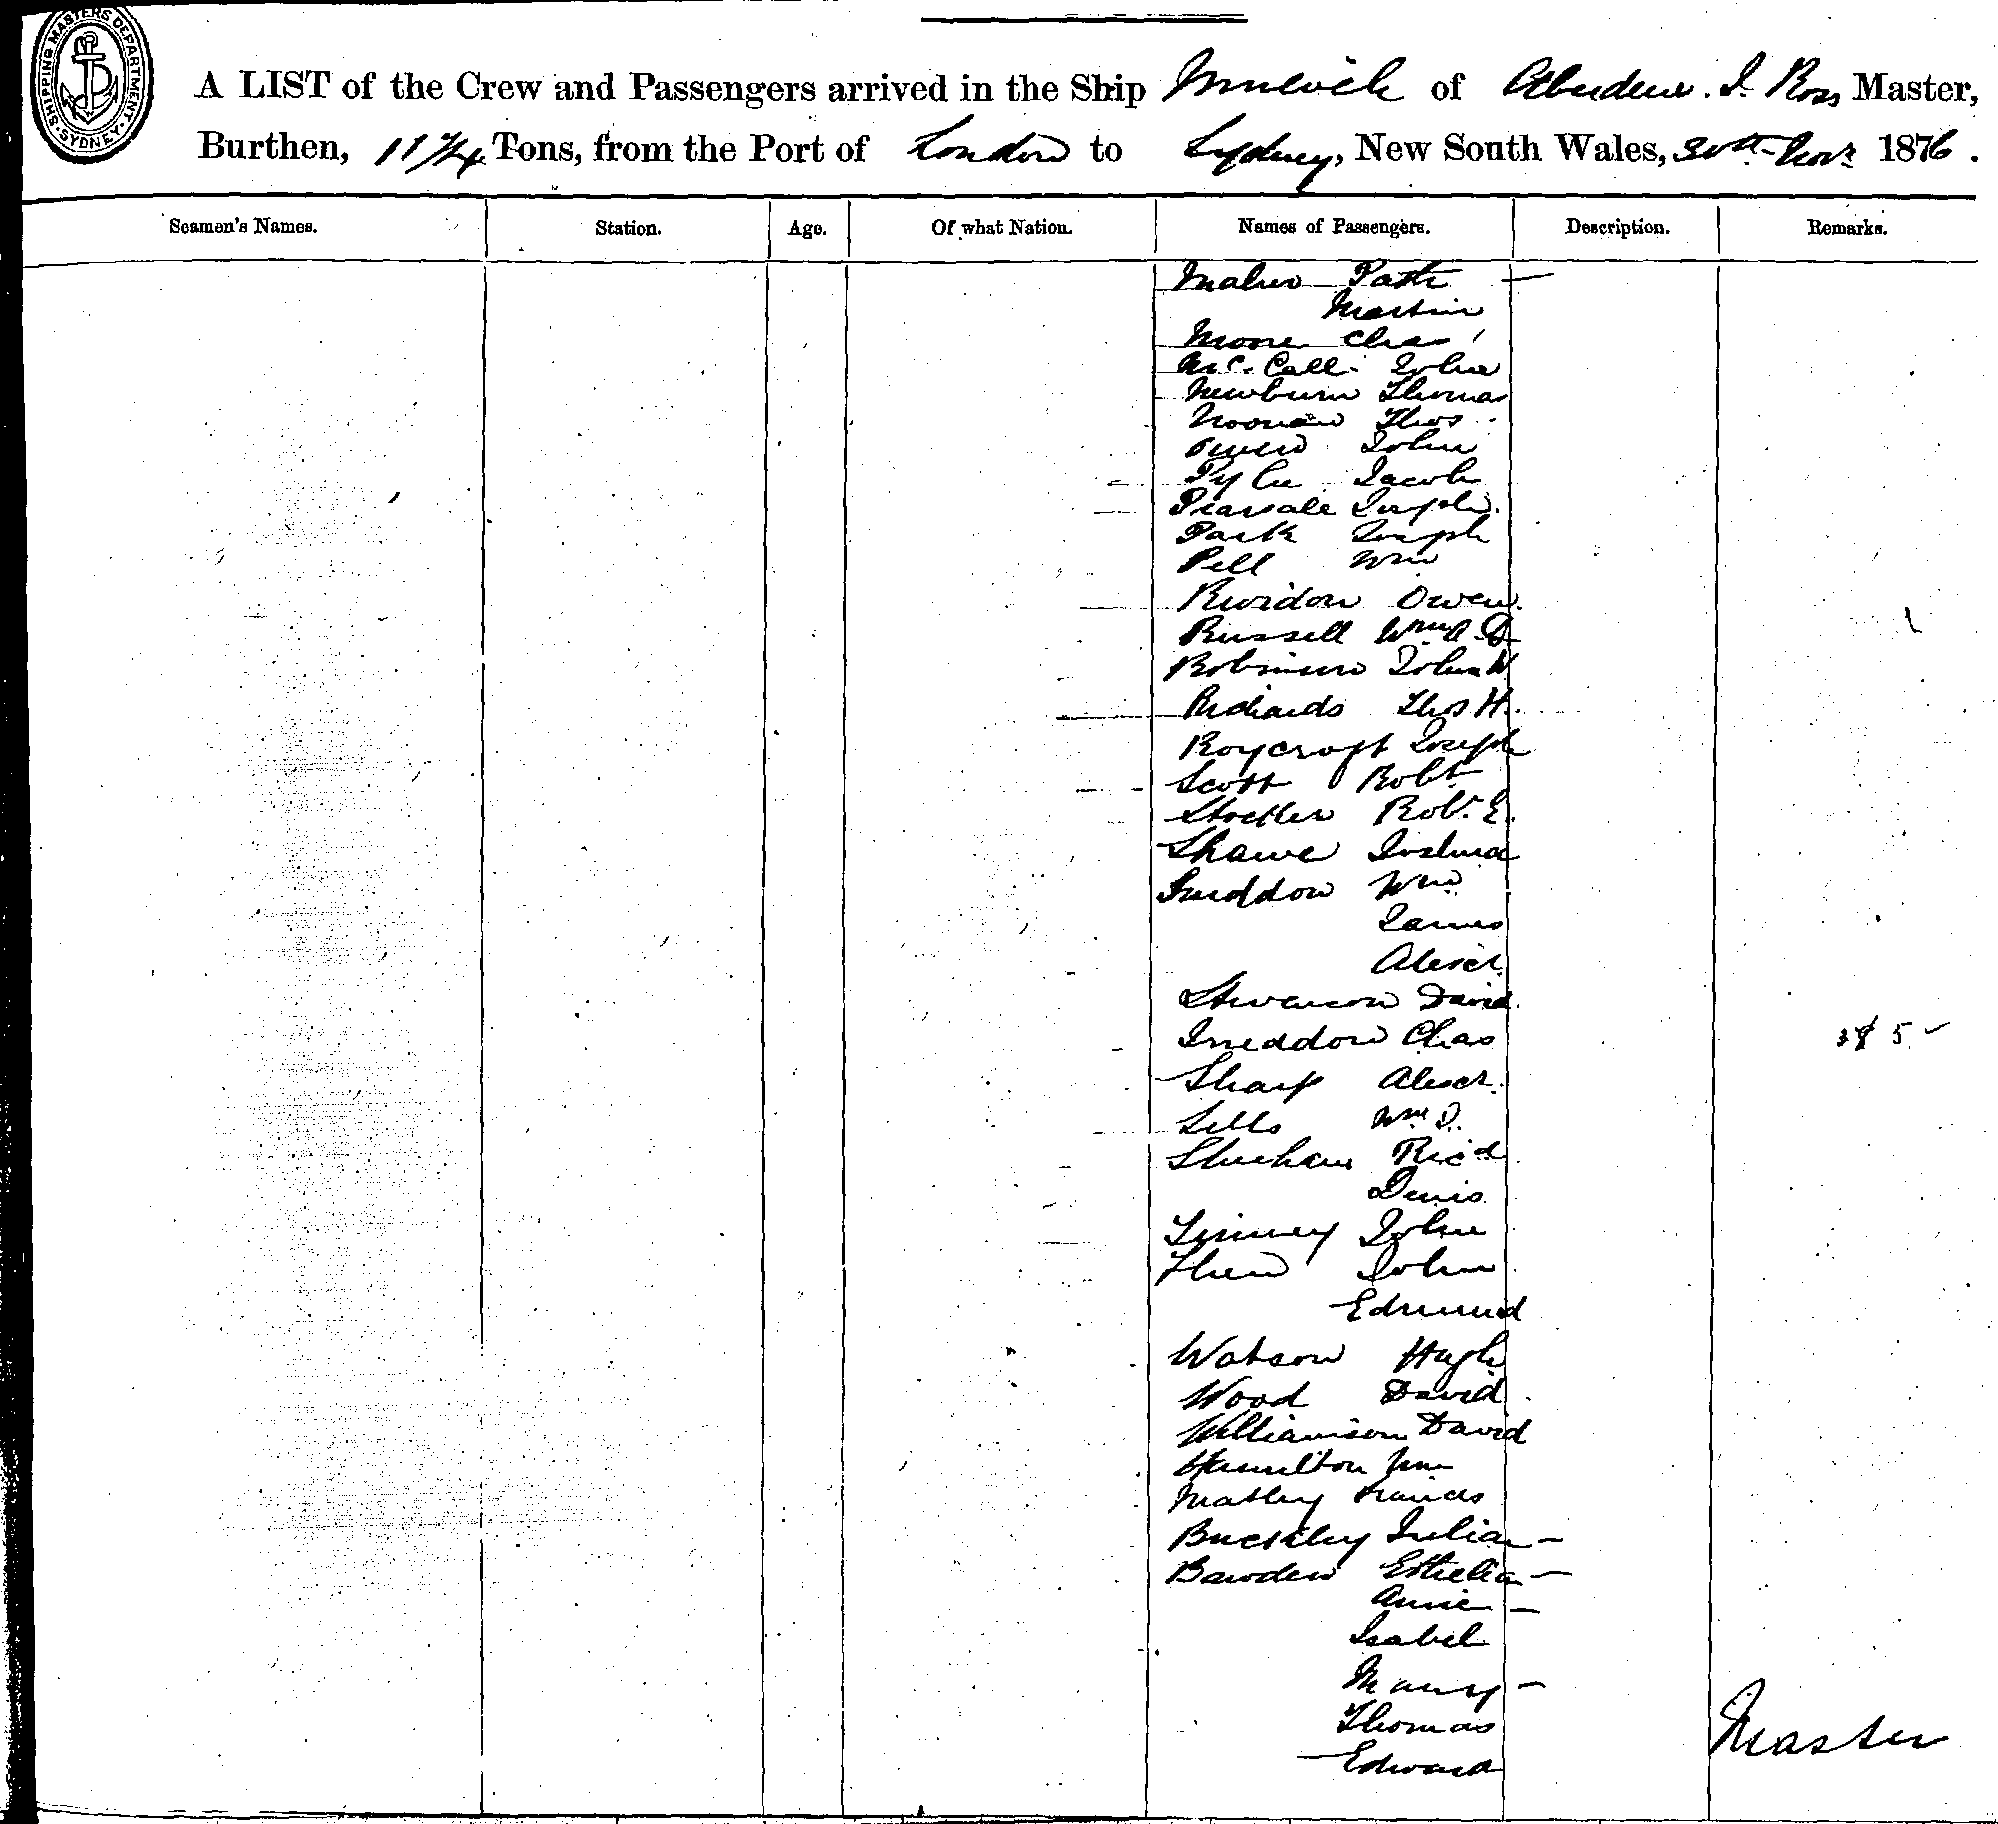 SHIPPING MASTERS DEPARTMENT · SYDNEY ·
A LIST of the Crew and Passengers arrived in the Ship of Aberdeen. J. Ross Master,
Burthen, Tons, from the Port of London to Sydney, New South Wales, 30th Novr 1876.
Seamen's Names. Station. Age. Of what Nation. Names of Passengers. Description. Remarks.
Maher Patk —
Martin
Moore Chas
McCall John
Newburn Thomas
Noonan Thos
Owen John
Pyle Jacob
Pearsall Joseph
Park Joseph
Pell Wm
Owen
Russell Wm A. D
Robinson John W
Richards Thos H.
Roycroft Joseph
Scott Robt
Robt. E.
Shawe Joshua
Sneddon Wm
James
Alexr
Stevenson David
Sneddon Chas
5
Sharp Alexr.
Sells Wm D.
Sheehan Ricd
Denis
Tinney John
John
Edmund
Watson Hugh
Wood David
Williamson David
Hamilton Wm
Matley Francis
Buckley Julia —
Bawden —
Annie —
Isabel
—
Thomas
Edward
Master